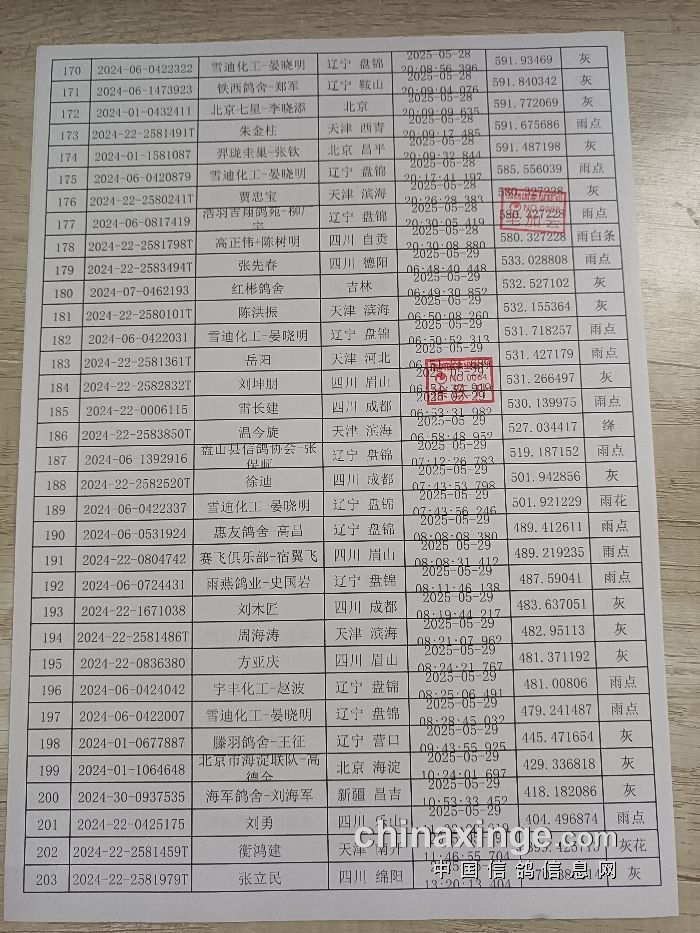 170 2024-06-0422322 雪迪化工-晏晓明 辽宁 盘锦 2025-05-28 20:08:56.396 591.93469 灰
171 2024-06-1473923 铁西鸽舍-郑军 辽宁 鞍山 2025-05-28 20:09:04.076 591.840342 灰
172 2024-01-0432411 北京七星-李晓添 北京 2025-05-28 20:09:09.635 591.772069 灰
173 2024-22-2581491T 朱金柱 天津 西青 2025-05-28 20:09:17.485 591.675686 雨点
174 2024-01-1581087 羿珑圭巢-张钦 北京 昌平 2025-05-28 20:09:32.844 591.487198 灰
175 2024-06-0420879 雪迪化工-晏晓明 辽宁 盘锦 2025-05-28 20:17:41.197 585.556039 雨点
176 2024-22-2580241T 贾忠宝 天津 滨海 2025-05-28 20:26:28.383 580.327228 灰
177 2024-06-0817419 浩羽吉翔鸽苑-柳广宝 辽宁 盘锦 2025-05-28 20:30:05.419 580.327228 雨点
178 2024-22-2581798T 高正伟+陈树明 四川 自贡 2025-05-28 20:30:08.880 580.327228 雨白条
179 2024-22-2583494T 张先春 四川 德阳 2025-05-29 06:48:40.448 533.028808 雨点
180 2024-07-0462193 红彬鸽舍 吉林 2025-05-29 06:49:30.852 532.527102 灰
181 2024-22-2580101T 陈洪振 天津 滨海 2025-05-29 06:50:08.260 532.155364 灰
182 2024-06-0422031 雪迪化工-晏晓明 辽宁 盘锦 2025-05-29 06:50:52.313 531.718257 雨点
183 2024-22-2581361T 岳阳 天津 河北 2025-05-29 531.427179 雨点
184 2024-22-2582832T 刘坤朋 四川 眉山 2025-05-29 531.266497 灰
185 2024-22-0006115 雷长建 四川 成都 2025-05-29 06:53:31.982 530.139975 雨点
186 2024-22-2583850T 温今旋 天津 滨海 2025-05-29 06:58:48.952 527.034417 绛
187 2024-06-1392916 盘山县信鸽协会-张保顺 辽宁 盘锦 2025-05-29 07:12:26.783 519.187152 雨点
188 2024-22-2582520T 徐迪 四川 成都 2025-05-29 07:43:53.798 501.942856 灰
189 2024-06-0422337 雪迪化工-晏晓明 辽宁 盘锦 2025-05-29 07:43:56.246 501.921229 雨花
190 2024-06-0531924 惠友鸽舍-高昌 辽宁 盘锦 2025-05-29 08:08:08.380 489.412611 雨点
191 2024-22-0804742 赛飞俱乐部-宿翼飞 四川 眉山 2025-05-29 08:08:31.412 489.219235 雨点
192 2024-06-0724431 雨燕鸽业-史国岩 辽宁 盘锦 2025-05-29 08:11:46.138 487.59041 雨点
193 2024-22-1671038 刘木匠 四川 成都 2025-05-29 08:19:44.217 483.637051 灰
194 2024-22-2581486T 周海涛 天津 滨海 2025-05-29 08:21:07.962 482.95113 灰
195 2024-22-0836380 方亚庆 四川 眉山 2025-05-29 08:24:21.767 481.371192 灰
196 2024-06-0424042 宇丰化工-赵波 辽宁 盘锦 2025-05-29 08:25:06.491 481.00806 雨点
197 2024-06-0422007 雪迪化工-晏晓明 辽宁 盘锦 2025-05-29 08:28:45.032 479.241487 雨点
198 2024-01-0677887 滕羽鸽舍-王征 辽宁 营口 2025-05-29 09:43:55.925 445.471654 灰
199 2024-01-1064648 北京市海淀联队-高德金 北京 海淀 2025-05-29 10:24:01.697 429.336818 灰
200 2024-30-0937535 海军鸽舍-刘海军 新疆 昌吉 2025-05-29 10:53:33.452 418.182086 灰
201 2024-22-0425175 刘勇 四川 乐山 2025-05-29 404.496874 雨点
202 2024-22-2581459T 衡鸿建 天津 南开 11:46:55.704 灰花
203 2024-22-2581979T 张立民 四川 绵阳 13:20:13.404 灰
NO.0064
chinaxinge.com
中国信鸽信息网